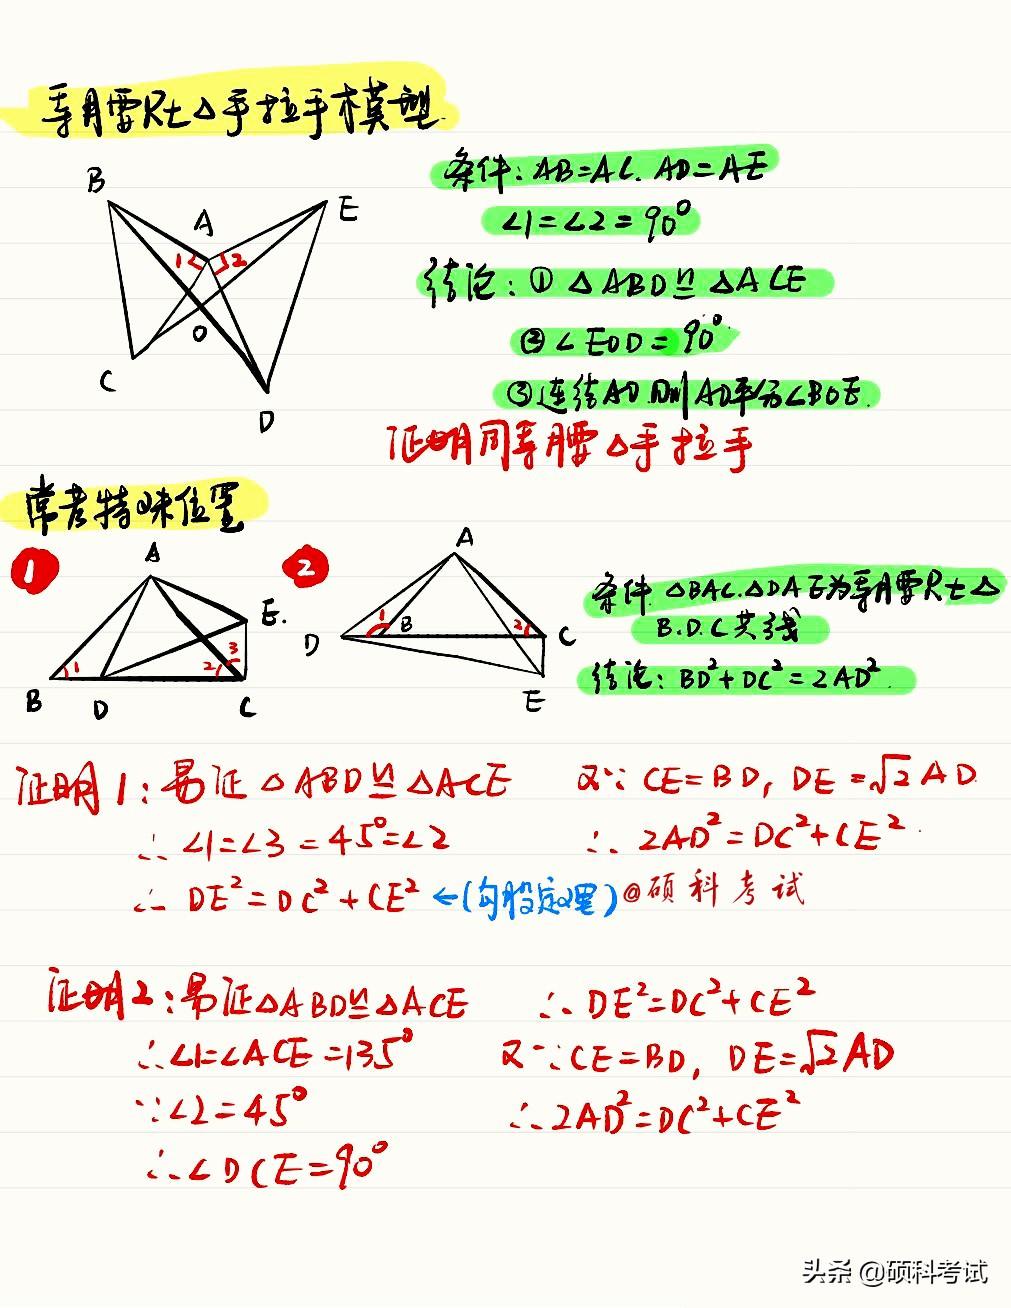 等腰Rt△手拉手模型
B
A
E
1
2
O
C
D
条件:AB=AC.AD=AE
∠1=∠2=90°
结论:①△ABD≌△ACE
②∠EOD=90°
③连结AO.则AO平分∠BOE.
证明同等腰△手拉手
常考特殊位置
1
A
E.
1
2
3
B
D
C
2
A
D
1
B
2
C
E
条件.△BAC.△DAE为等腰Rt△
B.D.C共线
结论:BD²+DC²=2AD².
证明1:易证△ABD≌△ACE
∴∠1=∠3=45°=∠2
∴DE²=DC²+CE²←(勾股定理)
又∵CE=BD,DE=√2AD
∴2AD²=DC²+CE².
@硕科考试
证明2:易证△ABD≌△ACE
∴∠1=∠ACE=135°
∵∠2=45°
∴∠DCE=90°
∴DE²=DC²+CE²
又∵CE=BD,DE=√2AD
∴2AD²=DC²+CE²
头条@硕科考试